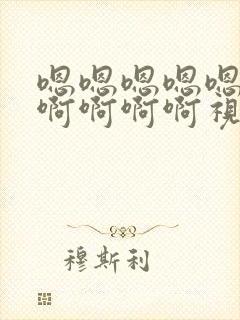 嗯嗯嗯嗯嗯
啊啊啊啊视
穆斯利